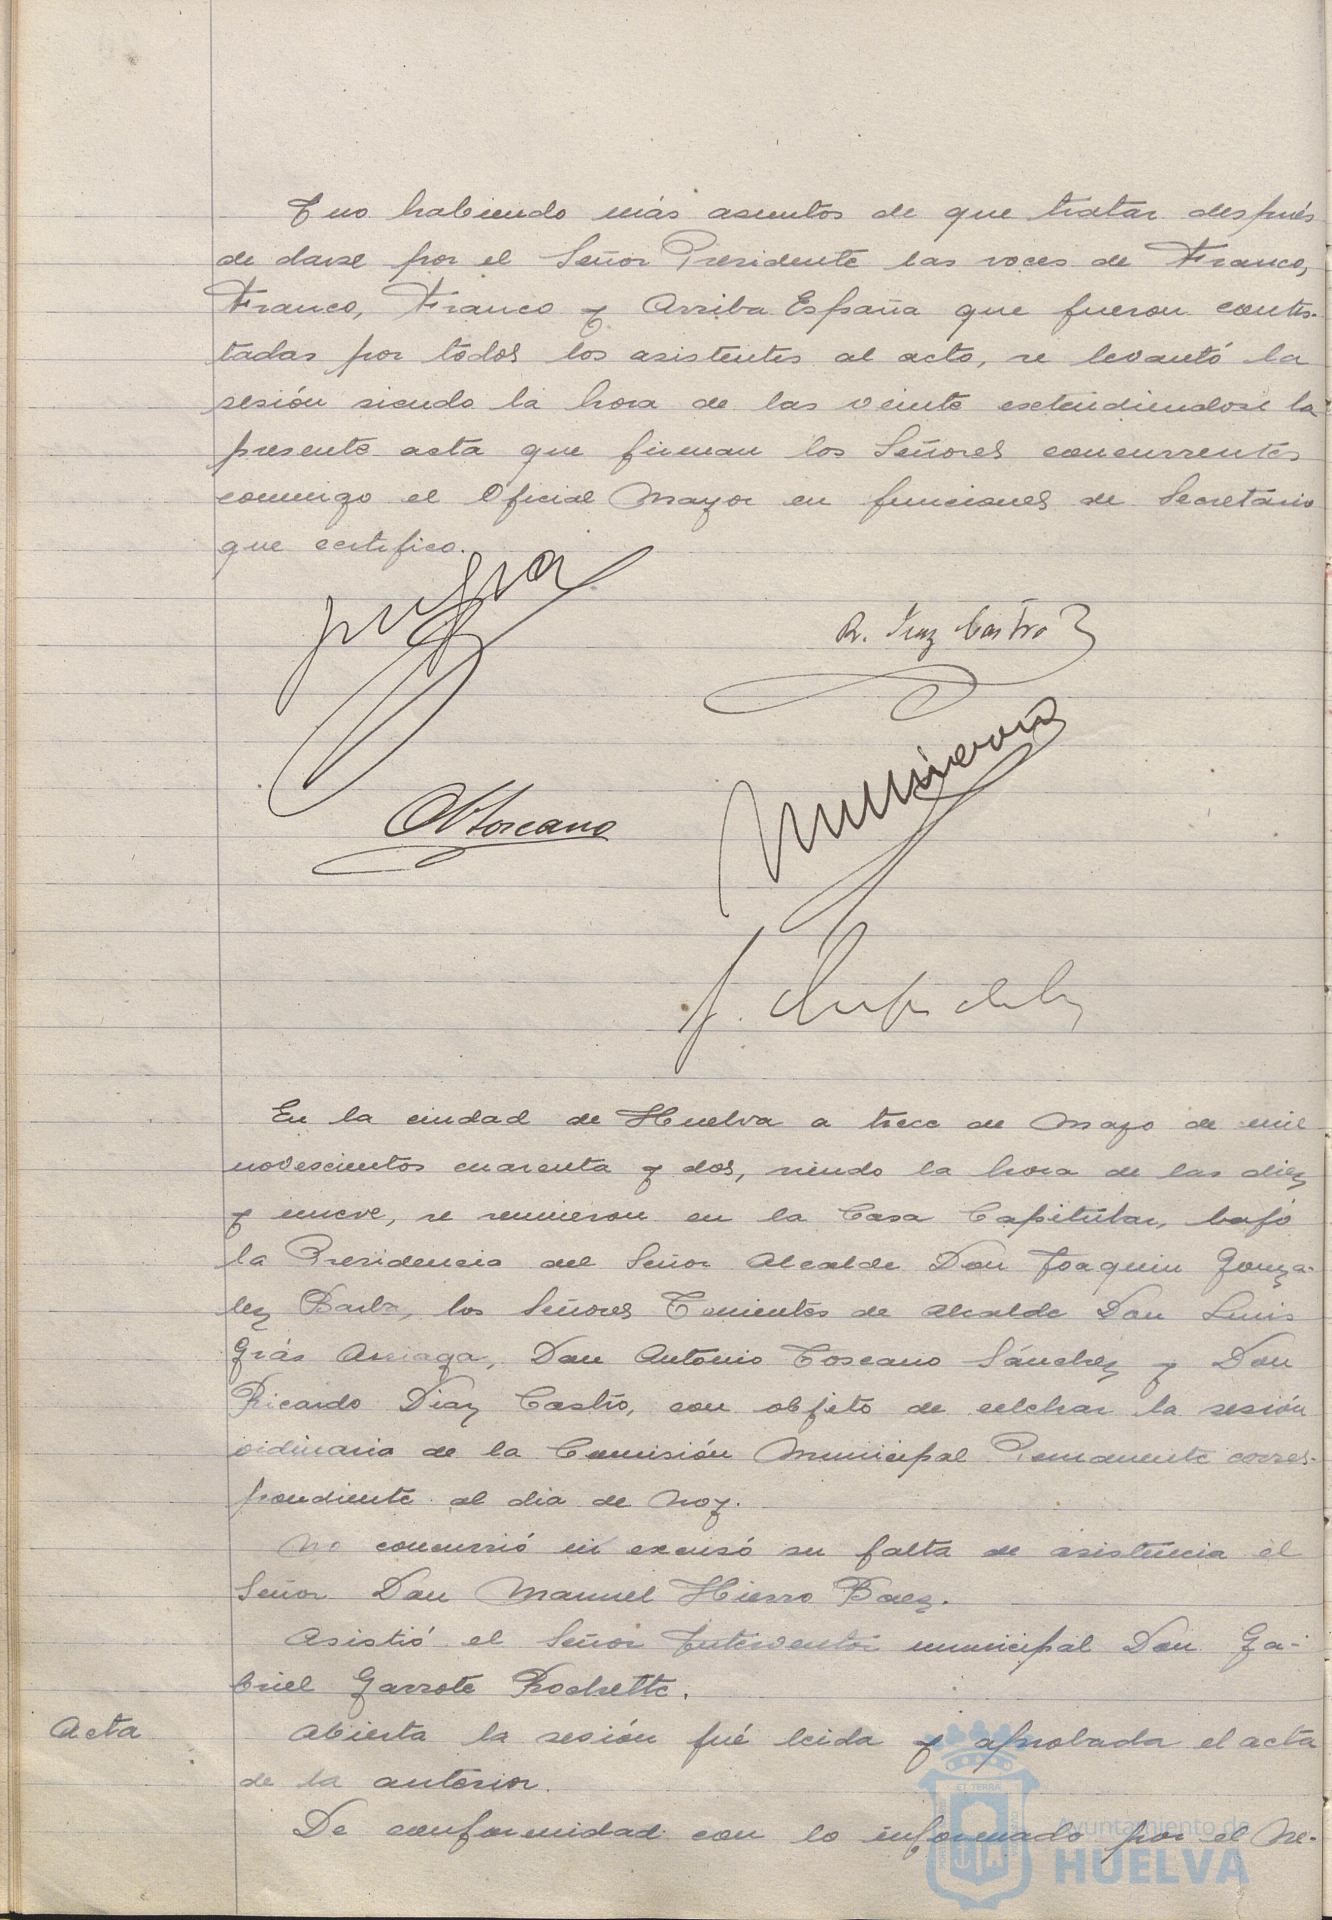 Y no habiendo más asuntos de que tratar después
de darse por el Señor Presidente las voces de Franco,
Franco, Franco y Arriba España que fueron contes-
tadas por todos los asistentes al acto, se levantó la
sesión siendo la hora de las veinte extendiendose la
presente acta que firman los Señores concurrentes
conmigo el Oficial Mayor en funciones de Secretario
que certifico.
R. Diaz Castro
A Toscano
En la ciudad de Huelva a trece de Mayo de mil
novescientos cuarenta y dos, siendo la hora de las diez
y nueve, se reunieron en la Casa Capitular, bajo
la Presidencia del Señor Alcalde Don Joaquin Gonza-
lez Barba, los Señores Tenientes de Alcalde Don Luis
Grás Arriaga, Don Antonio Toscano Sánchez y Don
Ricardo Diaz Castro, con objeto de celebrar la sesión
ordinaria de la Comisión Municipal Permanente corres-
pondiente al dia de hoy.
No concurrió ni excusó su falta de asistencia el
Señor Don Manuel Hierro Baez.
Asistió el Señor Interventor municipal Don Ga-
briel Garrote Rochette.
Acta
Abierta la sesión fué leida y aprobada el acta
de la anterior.
De conformidad con lo informado por el Ne-
ET TERRA
Ayuntamiento de
HUELVA